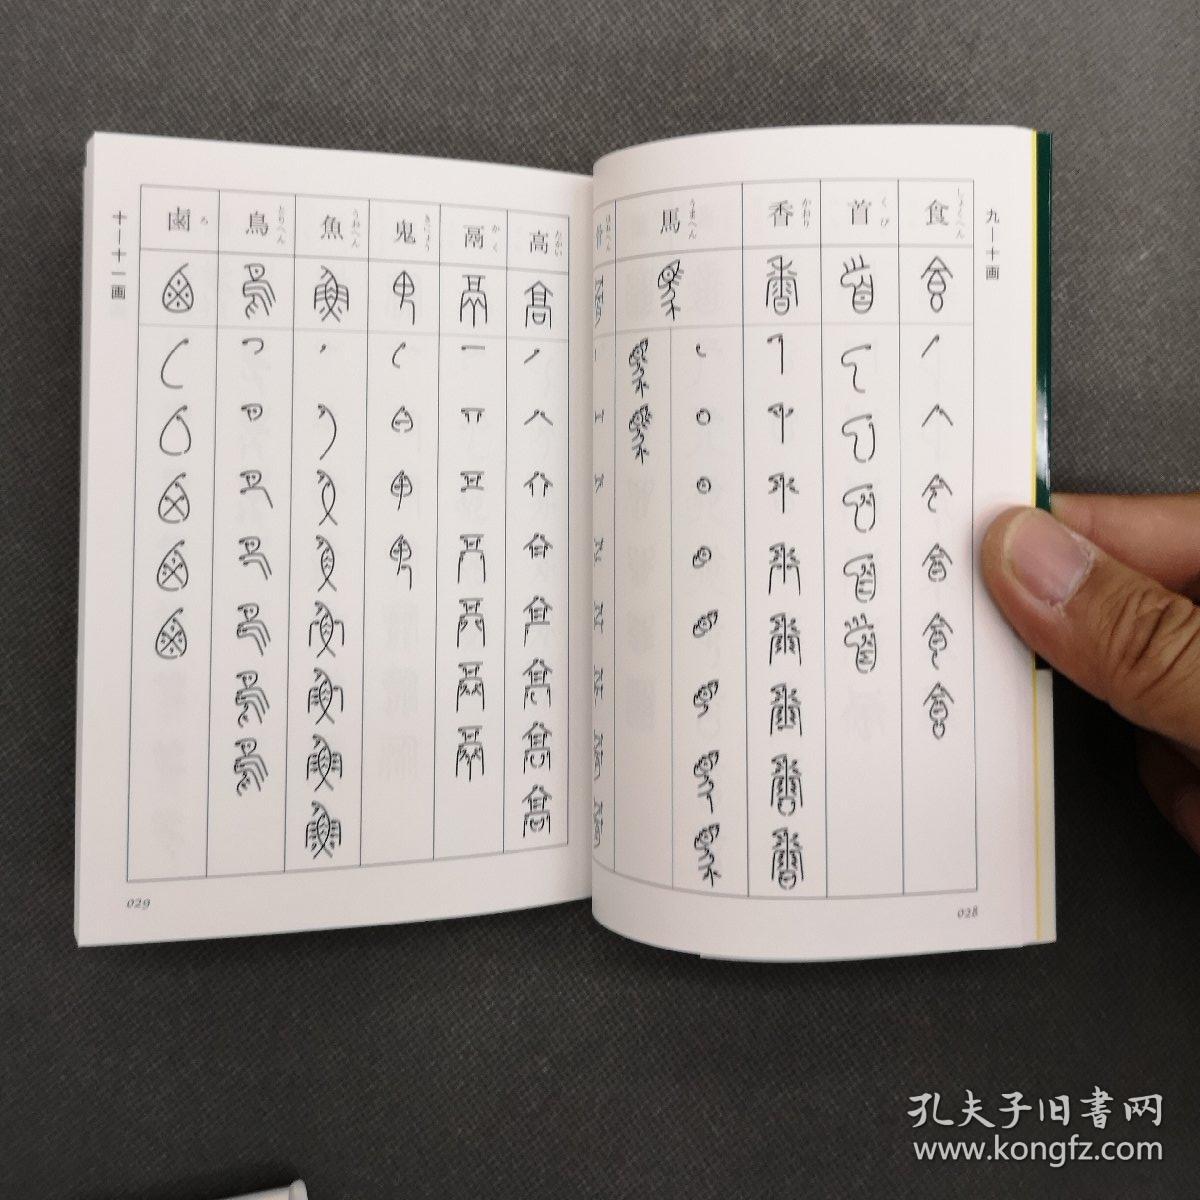 九—十画
食
しょくへん
首
くび
香
かおり
馬
うまへん
028
高
たかい
鬲
かく
鬼
きにょう
魚
うおへん
鳥
とりへん
鹵
ろ
十—十一画
029
孔夫子旧書网
www.kongfz.com